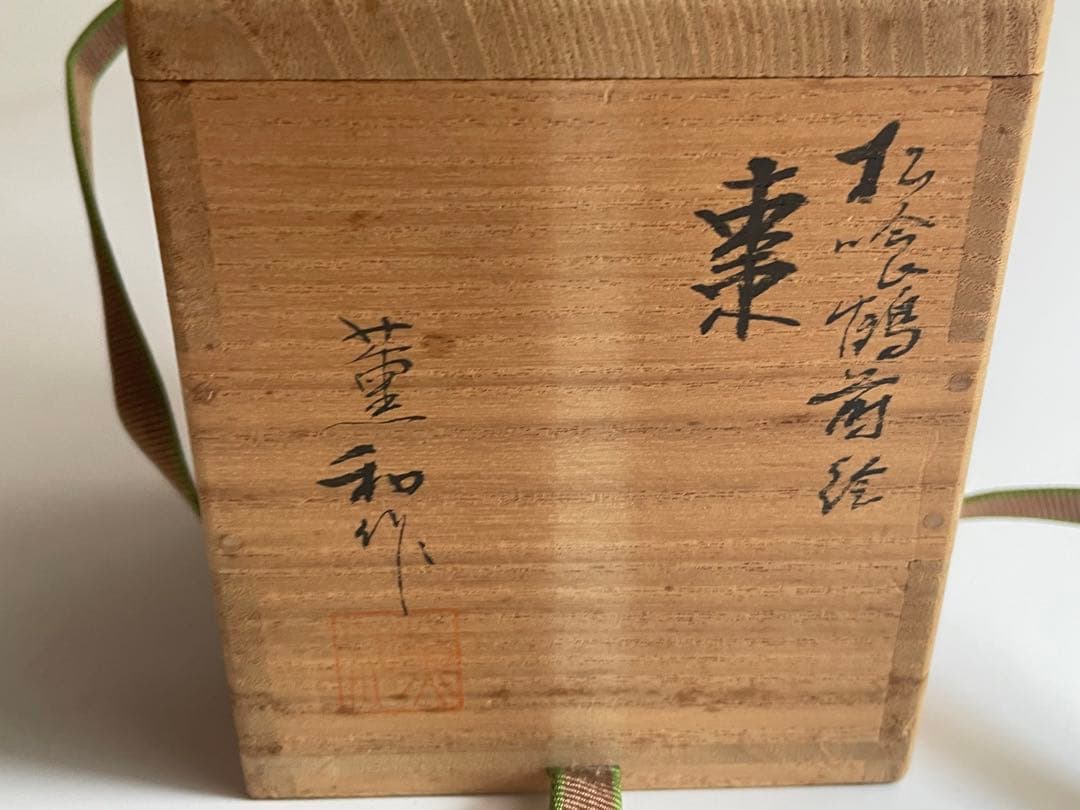 松喰鶴蒔絵
棗
薫和作